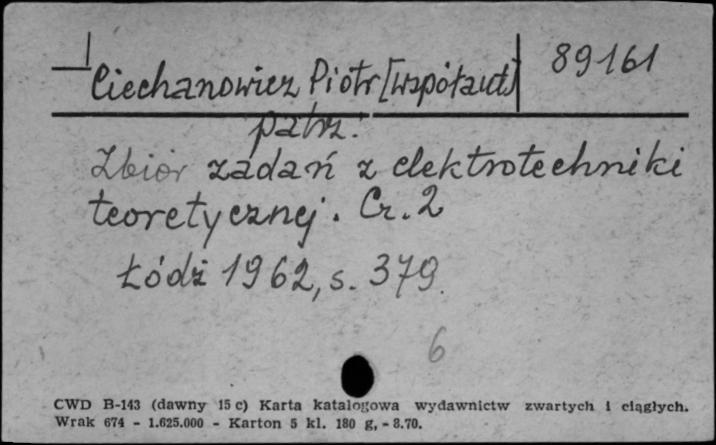 Ciechanowicz Piotr [współaut] 89161
patrz:
Zbiór zadań z elektrotechniki
teoretycznej. Cz. 2
Łódź 1962, s. 379.
6
CWD B-143 (dawny 15 c) Karta katalogowa wydawnictw zwartych i ciągłych.
Wrak 674 - 1.625.000 - Karton 5 kl. 180 g, - 8.70.